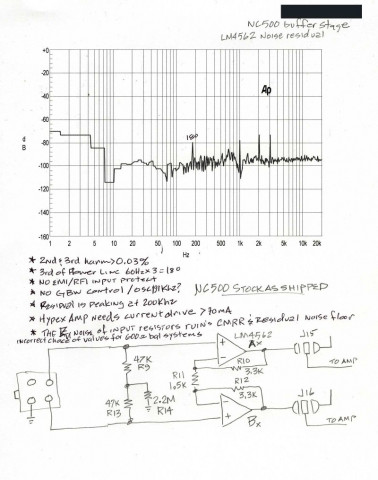 NC500 buffer stage
LM4562 Noise residual
+0
-20
-40
-60
-80
-100
-120
-140
-160
d
B
Ap
180
1 2 5 10 20 50 100 200 500 1k 2k 5k 10k 20k
Hz
* 2nd & 3rd harm > 0.03%
* 3rd of Power Line 60Hz x 3 = 180
* NO EMI/RFI input protect
* NO GBW control / osc@1Khz?
NC500 STOCK AS SHIPPED
* Residual is peaking at 200Khz
* Hypex Amp Needs current drive > 30mA
* THE Noise of INPUT resistors ruins CMRR & Residual Noise floor
incorrect choice of values for 600Ω bal systems
LM4562
47K
R9
47K
R13
2.2M
R14
R11
1.5K
Ax
R10
3.3K
R12
3.3K
Bx
J15
TO AMP
J16
TO AMP